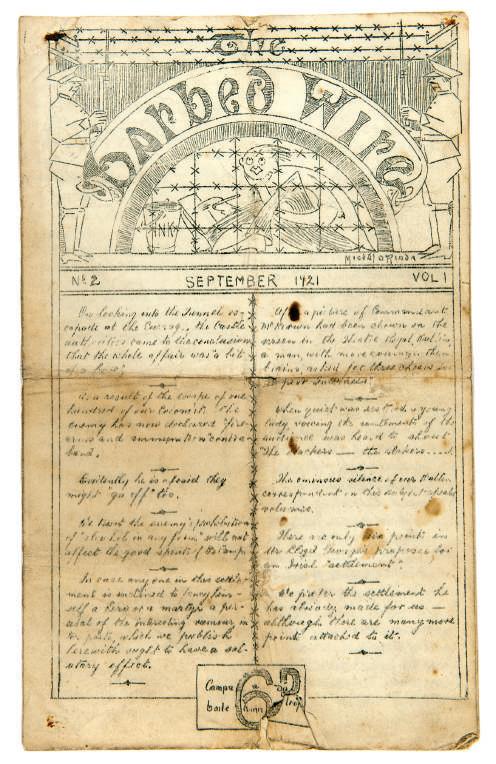 The
Barbed Wire
INK
Micheál O'Riada
No 2
SEPTEMBER 1921
VOL 1
On looking into the Tunnel es-
capade at the Curragh, the Castle
authorities came to the conclusion
that the whole affair was "a bit
of a hole".
As a result of the escape of one
hundred of our Coconuts. The
enemy has now declared fire-
arms and ammunition contra
band.
Evidently he is afraid they
might "go off" too.
We trust the enemy's prohibition
of "alcohol in any form" will not
affect the good spirits of the camp
In case anyone in this settle-
ment is inclined to fancy him-
self a hero or a martyr a per-
usal of the interesting rumour in
the posts, which we publish
herewith ought to have a sal-
utary effect.
After a picture of Commandant
McKeown had been shown on the
screen in the Theatre Royal Dublin,
a man, with more courage than
brains, asked for three cheers for
When quiet was restored a young
lady voicing the sentiments of the
audience was heard to shout
The Wackers — the Wackers....
The ominous silence of our Dublin
correspondent on this subject speaks
volumes.
There are only six points in
Mr Lloyd George's proposes for
an Irish "settlement".
We prefer the settlement he
has already made for us —
although there are many more
points attached to it.
Campa
baile